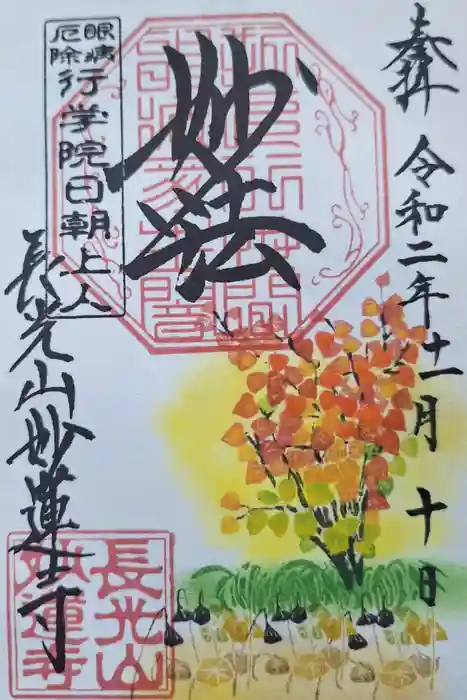 奉拝
令和二年十一月十日
妙法
眼病
厄除
行学院日朝上人
長光山妙蓮寺
長光山
妙蓮寺